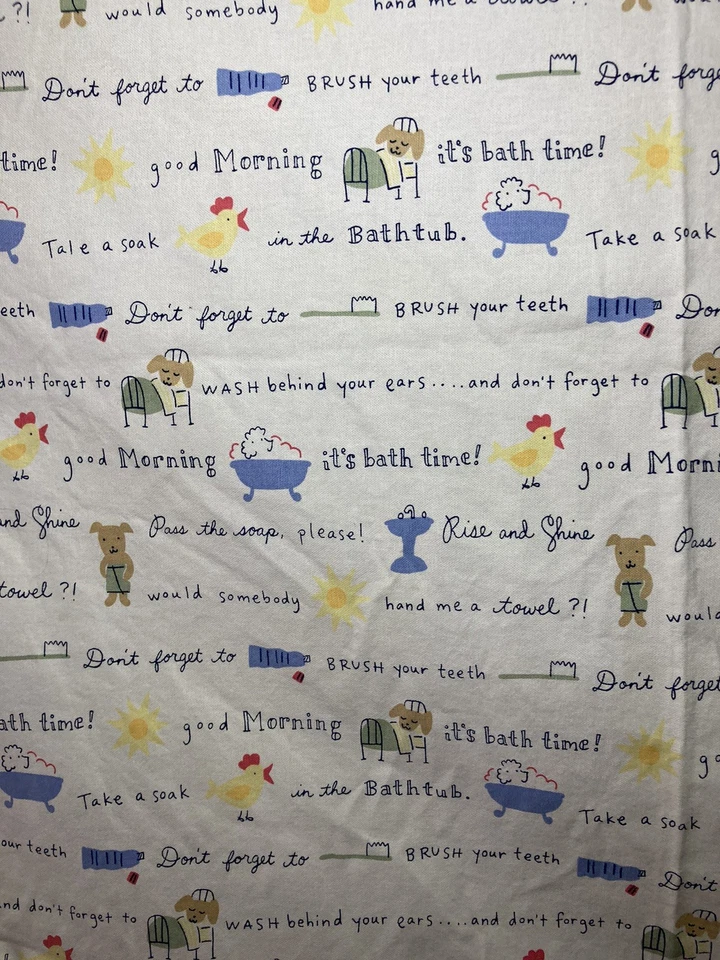 ?! would somebody hand me a towel ?!
Don't forget to BRUSH your teeth Don't forge
time! good Morning it's bath time! g
Tale a soak in the Bathtub. Take a soak
eeth Don't forget to BRUSH your teeth Don
don't forget to WASH behind your ears....and don't forget to
good Morning it's bath time! good Morni
nd Shine Pass the soap, please! Rise and Shine Pass
towel ?! would somebody hand me a towel ?! would
Don't forget to BRUSH your teeth Don't forget
ath time! good Morning it's bath time! go
Take a soak in the Bathtub. Take a soak
our teeth Don't forget to BRUSH your teeth Don't
nd don't forget to WASH behind your ears....and don't forget to